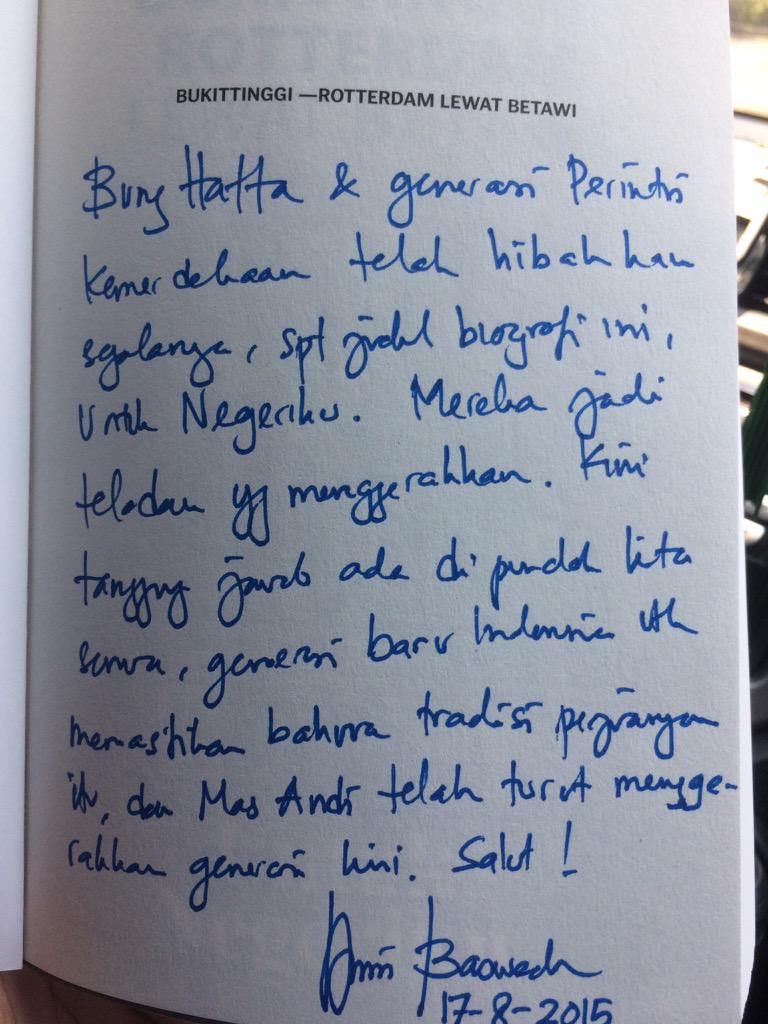 BUKITTINGGI —ROTTERDAM LEWAT BETAWI
Bung Hatta & generasi Perintis
Kemerdekaan telah hibahkan
sgalanya, spt judul biografi ini,
Untuk Negeriku. Mereka jadi
teladan yg menggerakkan. Kini
tanggung jawab ada di pundak kita
semua, generasi baru Indonesia utk
memastikan bahwa tradisi perjuangan
itu, dan Mas Andi telah turut mengge-
rakkan generasi kini. Salut!
Anies Baswedan
17-8-2015